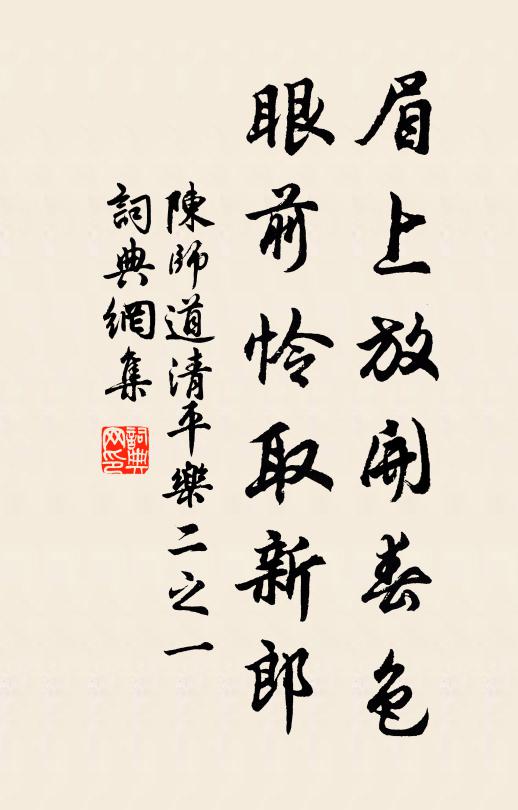 眉上放開春色
眼前怜取新郎
陳師道清平樂二之一
詞典網集
詞典网印